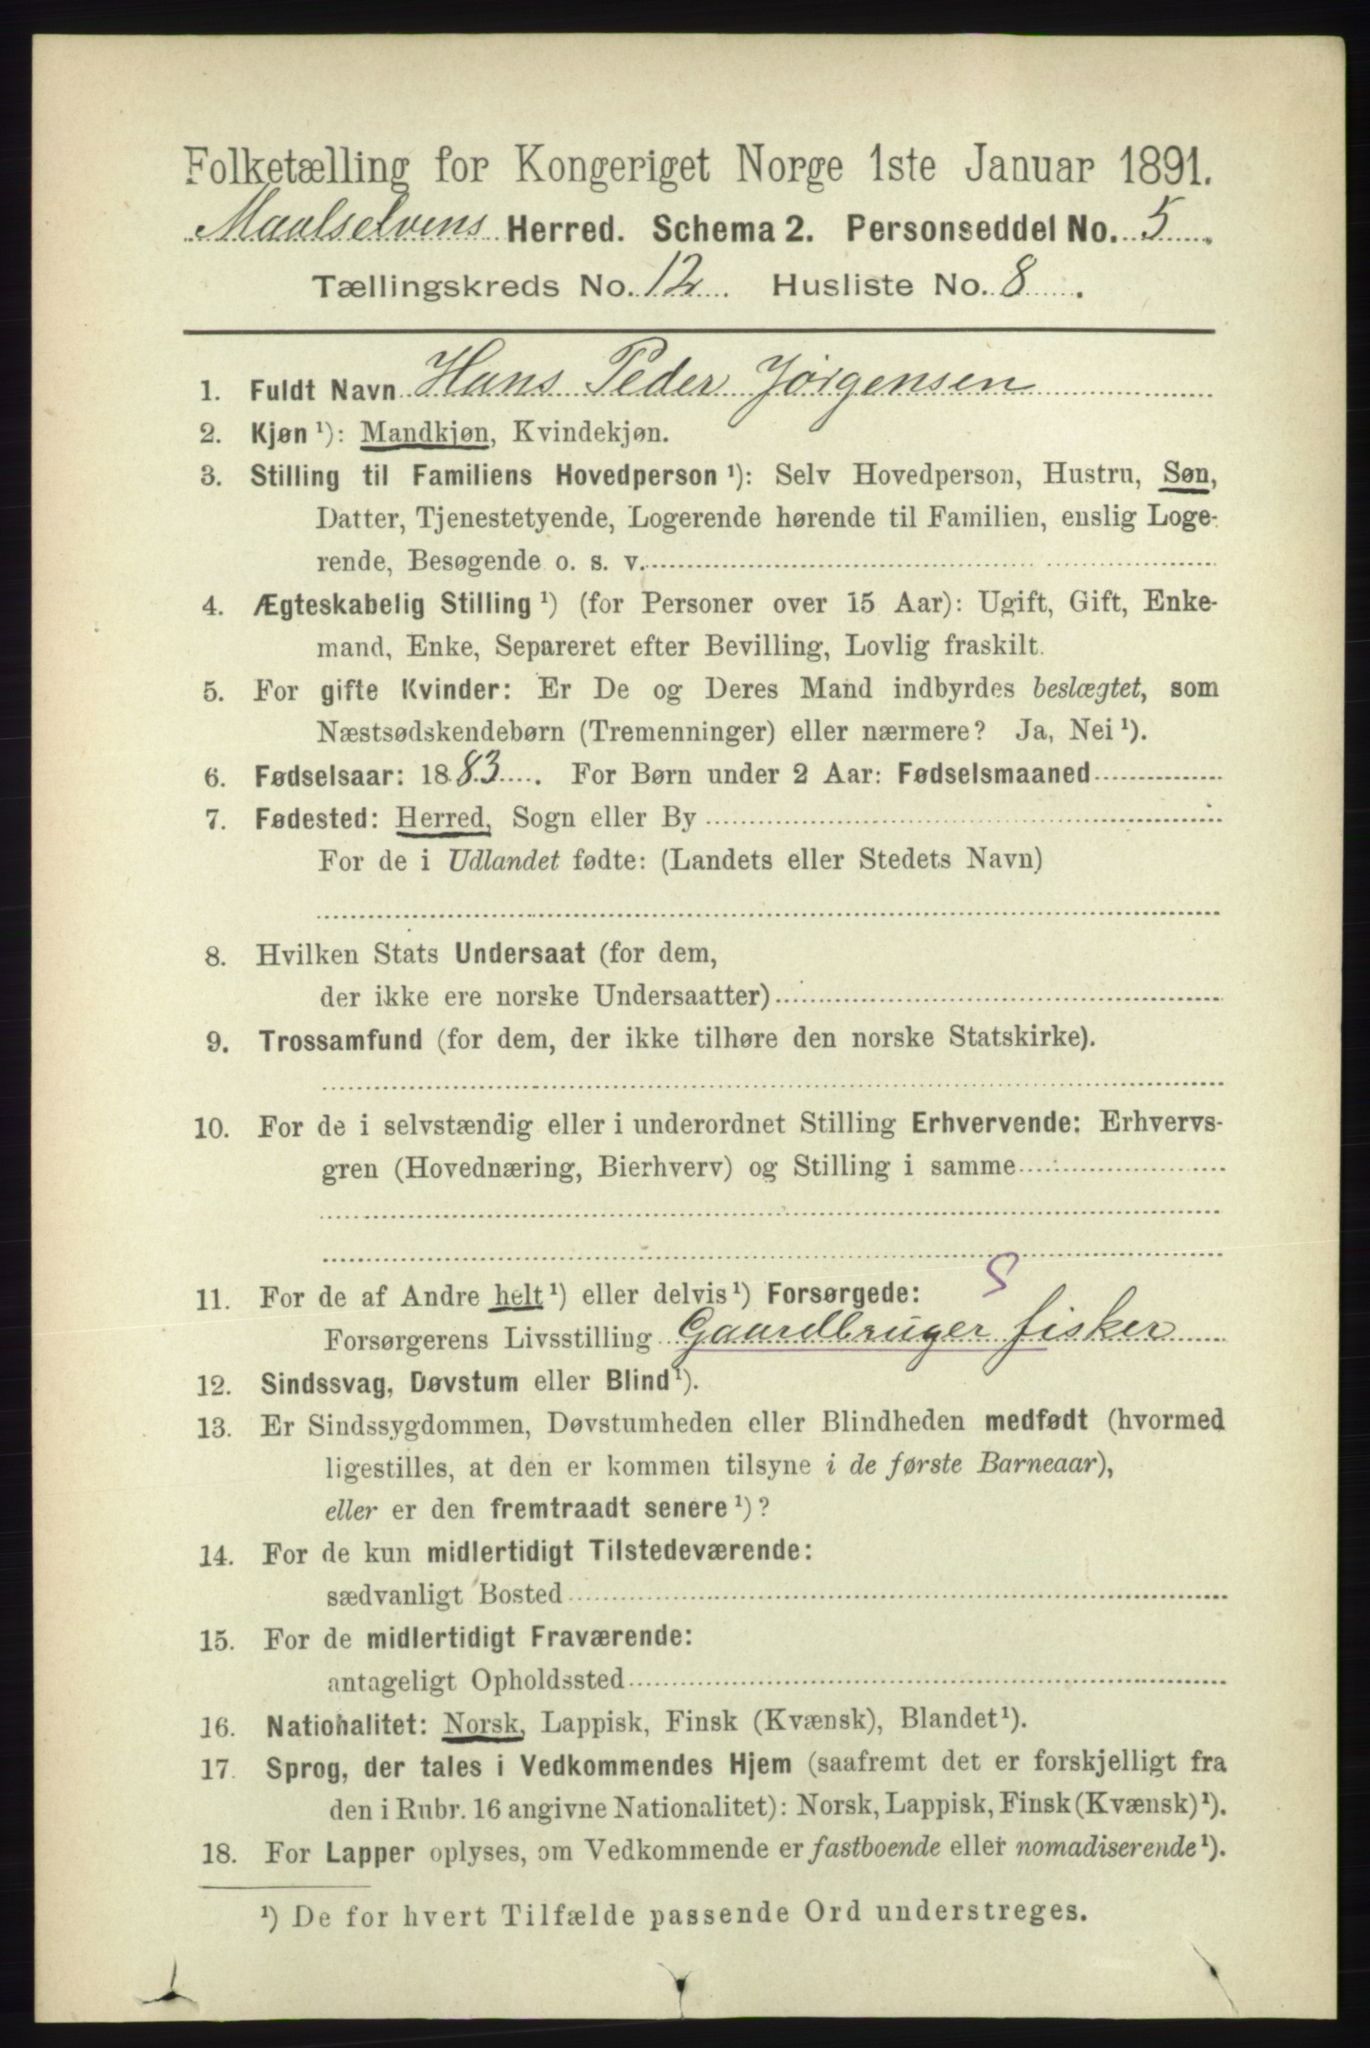 Folketælling for Kongeriget Norge 1ste Januar 1891.
Maalselvens Herred. Schema 2. Personseddel No. 5.
Tællingskreds No. 12. Husliste No. 8.
1. Fuldt Navn Hans Peder Jørgensen
2. Kjøn ¹): Mandkjøn, Kvindekjøn.
3. Stilling til Familiens Hovedperson ¹): Selv Hovedperson, Hustru, Søn,
Datter, Tjenestetyende, Logerende hørende til Familien, enslig Loge-
rende, Besøgende o. s. v.
4. Ægteskabelig Stilling ¹) (for Personer over 15 Aar): Ugift, Gift, Enke-
mand, Enke, Separeret efter Bevilling, Lovlig fraskilt.
5. For gifte Kvinder: Er De og Deres Mand indbyrdes beslægtet, som
Næstsødskendebørn (Tremenninger) eller nærmere? Ja, Nei ¹).
6. Fødselsaar: 1883. For Børn under 2 Aar: Fødselsmaaned
7. Fødested: Herred, Sogn eller By
For de i Udlandet fødte: (Landets eller Stedets Navn)
8. Hvilken Stats Undersaat (for dem,
der ikke ere norske Undersaatter)
9. Trossamfund (for dem, der ikke tilhøre den norske Statskirke).
10. For de i selvstændig eller i underordnet Stilling Erhvervende: Erhvervs-
gren (Hovednæring, Bierhverv) og Stilling i samme
S
11. For de af Andre helt ¹) eller delvis ¹) Forsørgede:
Forsørgerens Livsstilling Gaardbruger fisker
12. Sindssvag, Døvstum eller Blind ¹).
13. Er Sindssygdommen, Døvstumheden eller Blindheden medfødt (hvormed
ligestilles, at den er kommen tilsyne i de første Barneaar),
eller er den fremtraadt senere ¹)?
14. For de kun midlertidigt Tilstedeværende:
sædvanligt Bosted
15. For de midlertidigt Fraværende:
antageligt Opholdssted
16. Nationalitet: Norsk, Lappisk, Finsk (Kvænsk), Blandet ¹).
17. Sprog, der tales i Vedkommendes Hjem (saafremt det er forskjelligt fra
den i Rubr. 16 angivne Nationalitet): Norsk, Lappisk, Finsk (Kvænsk) ¹).
18. For Lapper oplyses, om Vedkommende er fastboende eller nomadiserende ¹).
¹) De for hvert Tilfælde passende Ord understreges.